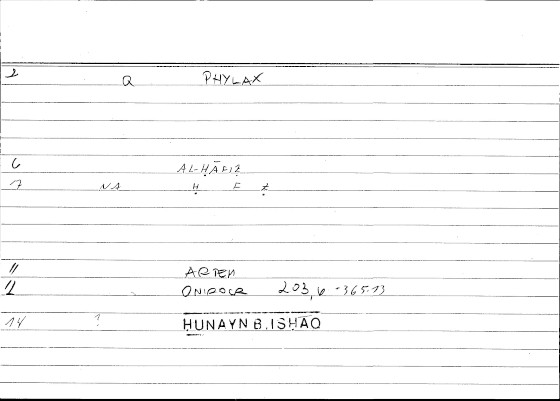 2 Q PHYLAX
6 AL-ḤĀFIẒ
7 NA Ḥ F Ẓ
11 ARTEM
12 ONIROCR 203,6 - 365.13
14 ? ḤUNAYN B. ISḤĀQ